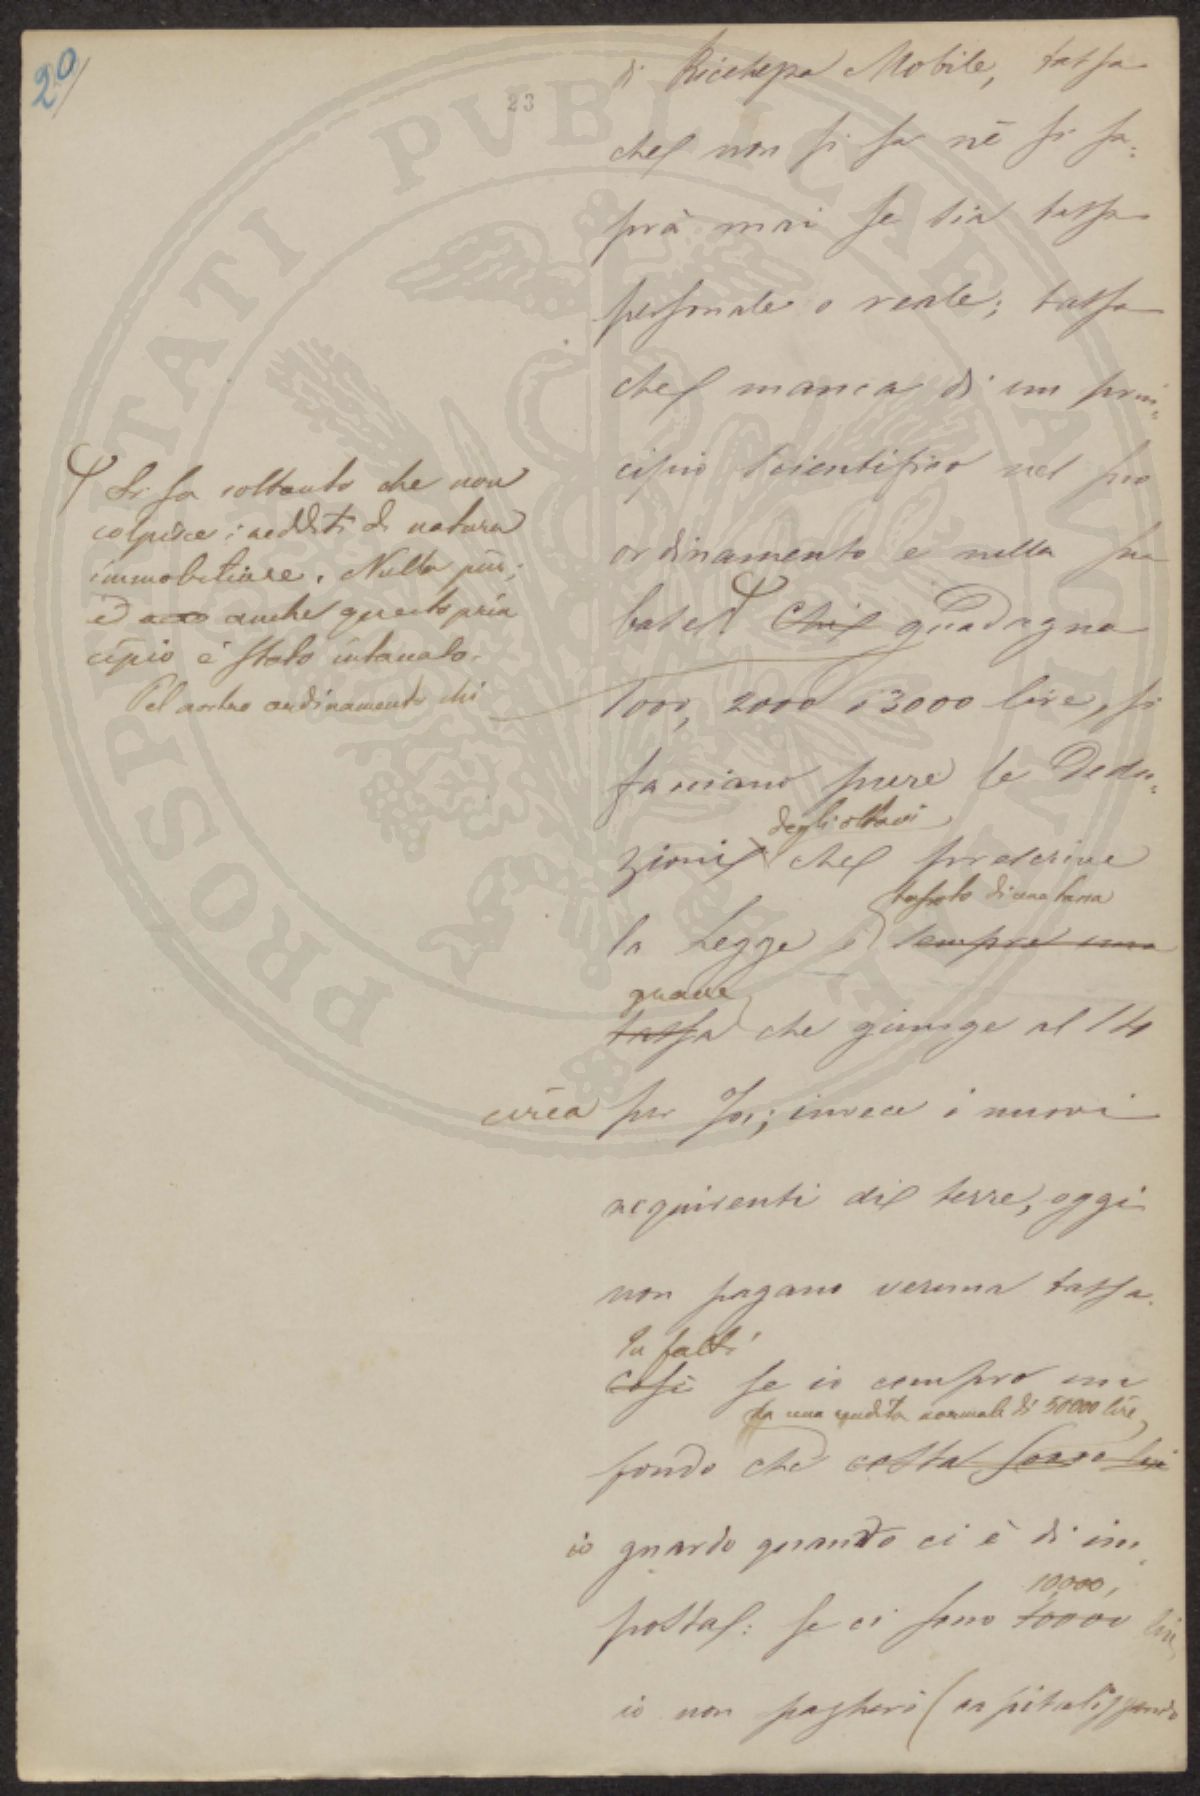 20
23
di Ricchezza Mobile, tassa
che non si sa nè si sa=
prà mai se sia tassa
personale o reale; tassa
che manca di un prin=
cipio scientifico nel suo
ordinamento e nella sua
base. Chi guadagna
Si sa soltanto che non
colpisce i redditi di natura
immobiliare. Nulla più;
ed anche questo prin
cipio è stato intaccato.
Pel nostro ordinamento chi
1000, 2000 o 3000 lire, si
facciano pure le dedu=
degli ottavi
zioni che prescrive
tassato di una tassa
la Legge è sempre una
grave
tassa che giunge al 14
circa per %; invece i nuovi
acquirenti di terre, oggi
non pagano veruna tassa.
In fatti
Così se io compro un
da una rendita normale di 50000 lire
fondo che costa
io guardo quando ci è di im=
10,000,
posta: se ci sono 10000 lire
io non pagherò (capitalizzando
PROSPERITATI PVBLICAE AVGENDAE